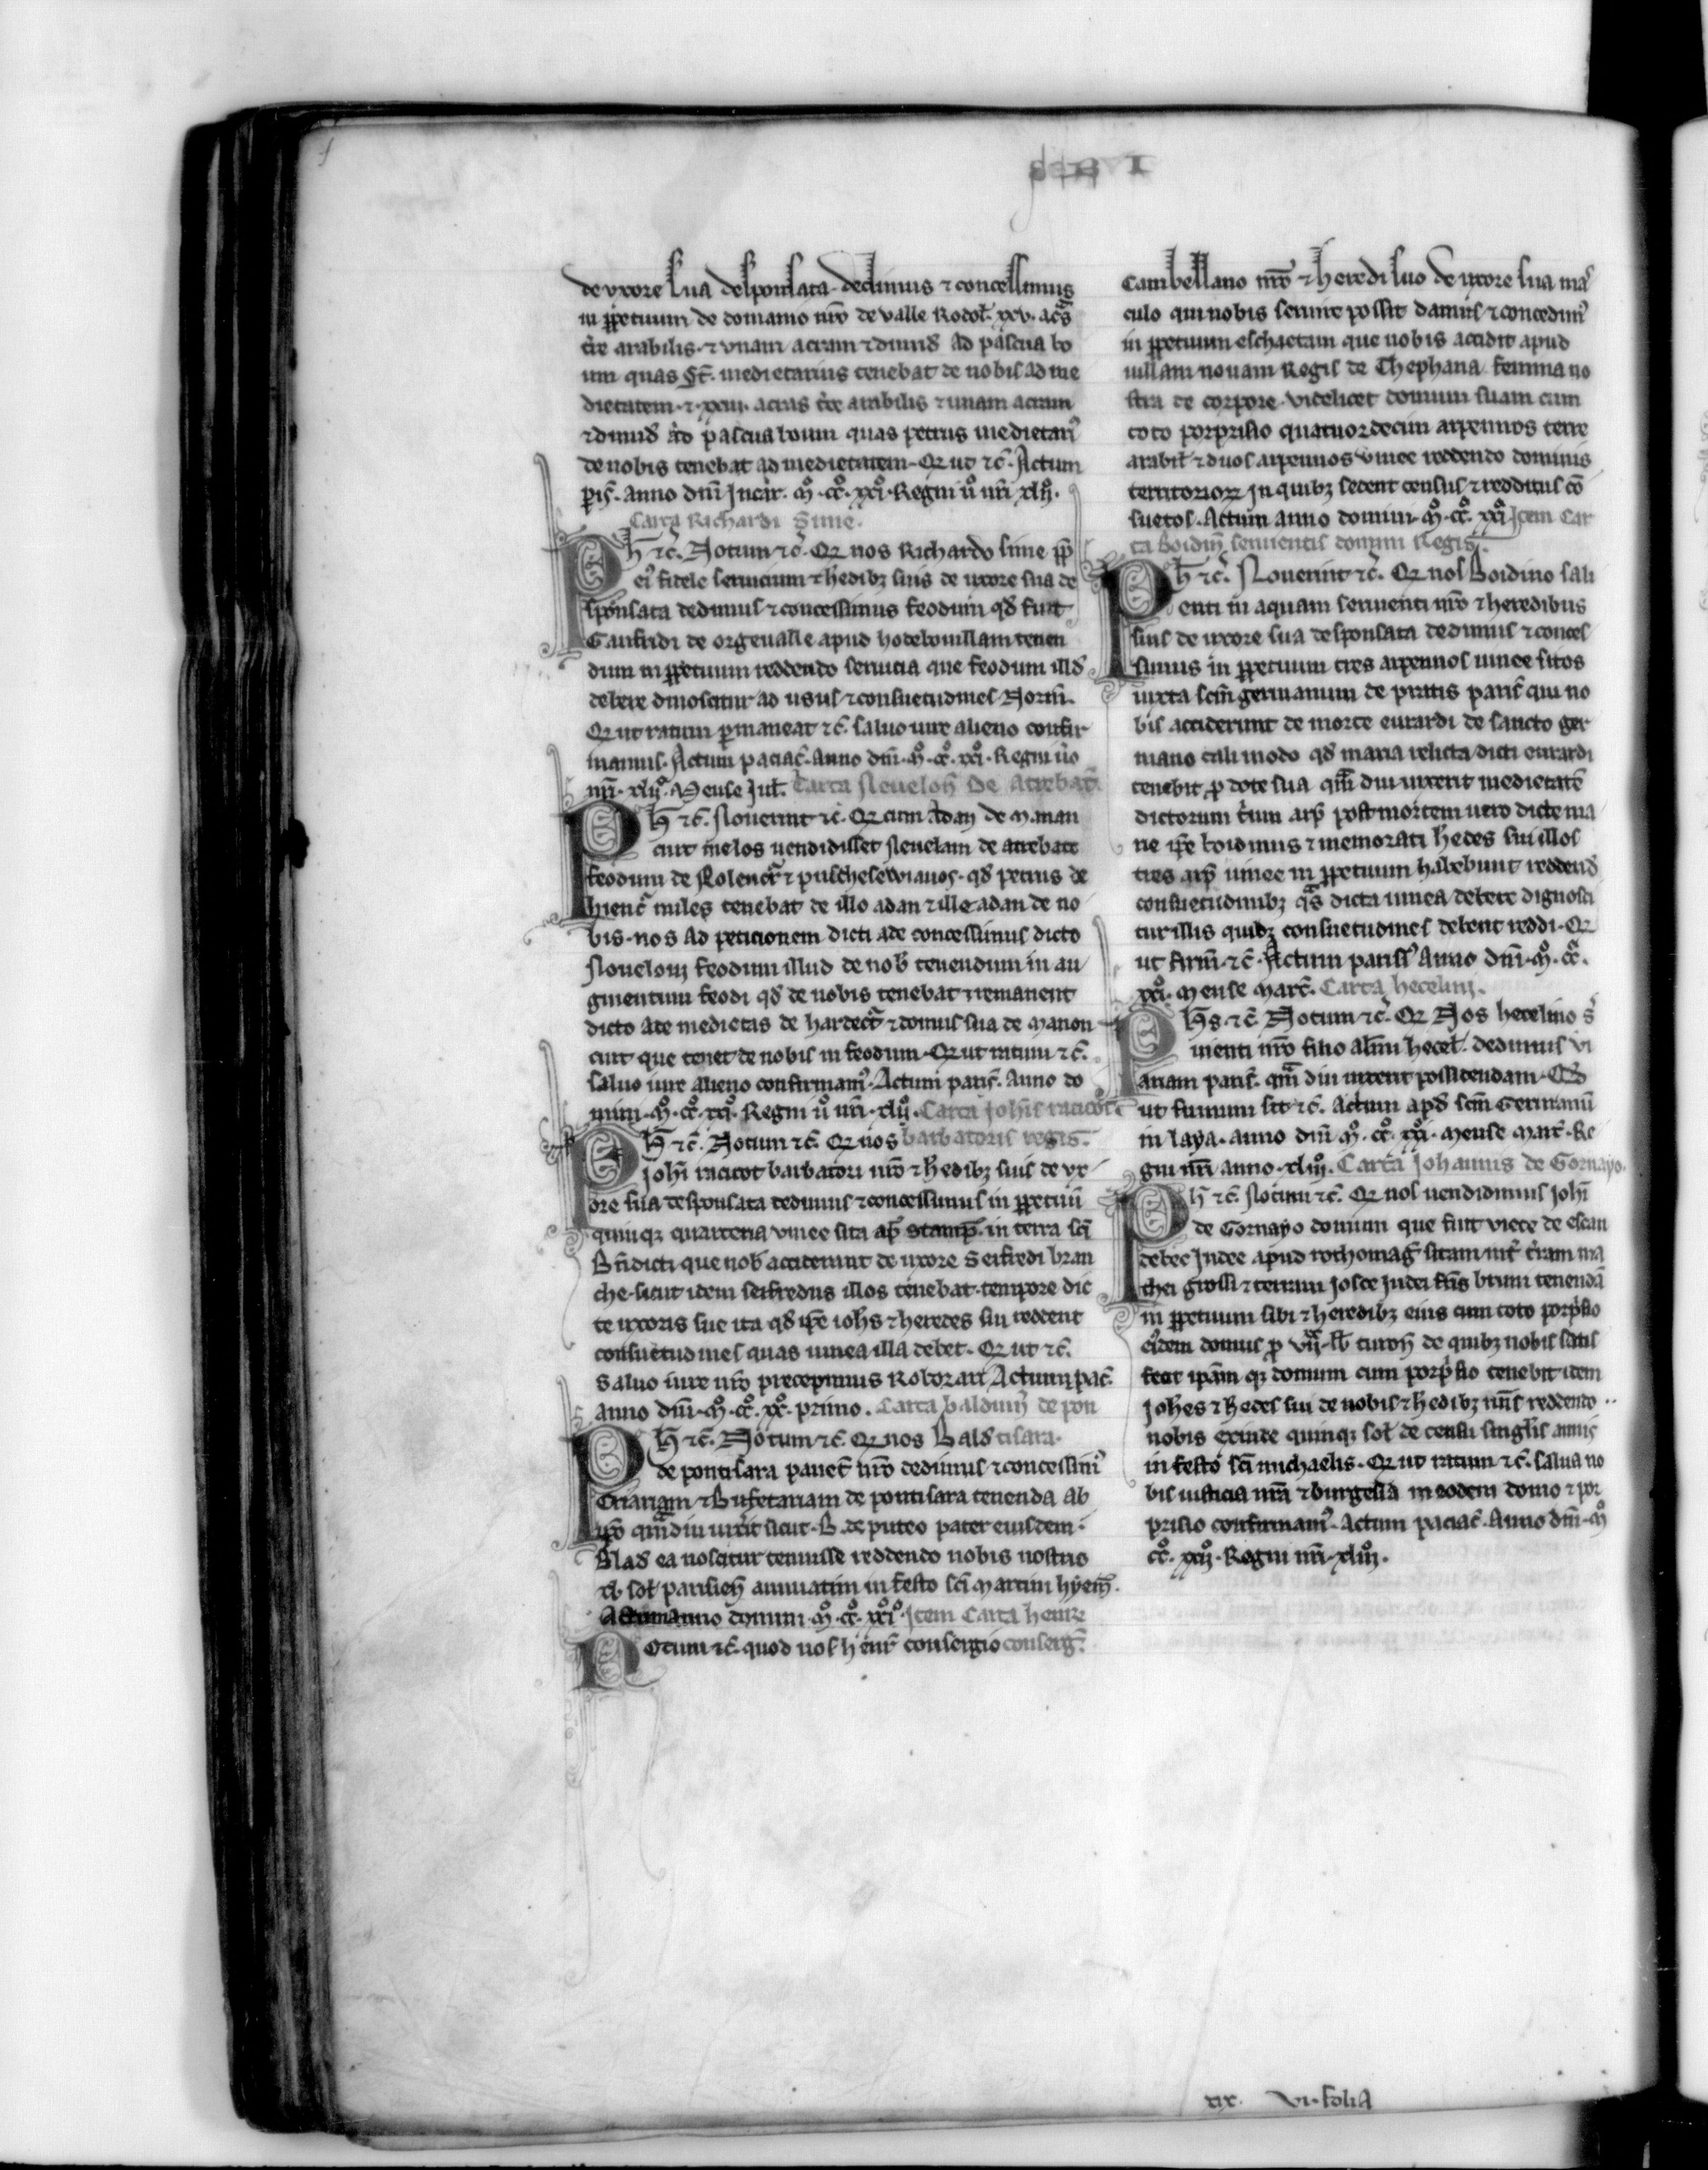 de uxore sua desponsata. dedimus ⁊ concessimus
in ꝑpetuum de domanio nr̄o de valle Rodol̄. xxv. ac̄s
t̄re arabilis. ⁊ vnam acram ⁊ dimid̄ ad pascua bo
um quas medietarius tenebat de nobis ad me
dietatem. ⁊ xxiii. acras t̄re arabilis ⁊ unam acram
⁊ dimid̄ ad pascua boum quas petrus medietari᷒
de nobis tenebat ad medietatem. Q̄ ut ⁊c̄. Actum
par̄. anno dn̄i Incar̄. mͦ. ccͦ. xxiͦ. Regni ū nr̄i xliiͦ.
Carta Richardi sime.
Ph̄ ⁊c̄. Notum ⁊c̄. Q̄ nos Richardo sime ꝓp̄
ei᷒ fidele seruicium ⁊ h̄edibꝫ suis de uxore sua de
sponsata dedimus ⁊ concessimus feodum qd̄ fuit
Gaufridi de orgeualle apud hodebouillam tenen
dum in ꝑpetuum reddendo seruicia que feodum illd̄
debere dinoscitur ad usus ⁊ consuetudines Norm̄.
Q̄ ut ratum ꝑmaneat ⁊c̄. saluo iure alieno confir
mamus. Actum paciac̄. anno dn̄i. mͦ. ccͦ. xxiͦ. Regni ūo
nr̄i. xliiͦ. Mense Jul̄. Carta Neuelon̄ de Atrebat̄.
Ph̄ ⁊c̄. Nouerint ⁊c̄. Q̄ cum adan de m.man
curt miles uendidisset Neuelam de atrebate
feodum de Nolencr̄ ⁊ puschesewianos. qd̄ petrus de
hienc̄ miles tenebat de illo adan ⁊ ille adan de no
bis. nos ad peticionem dicti ade concessimus dicto
Neueloni feodum illud de nob̄ tenendum in au
gmentum feodi qd̄ de nobis tenebat ⁊ remanent
dicto ade medietas de hardecr̄ ⁊ domus sua de manon
curt que tenet de nobis in feodum. Q̄ ut ratum ⁊c̄.
saluo iure alieno confirmam᷒. Actum paris̄. Anno do
mini. mͦ. ccͦ. xxiͦ. Regni ū nr̄i. xliiͦ. Carta Johīs racicot
Ph̄ ⁊c̄. Notum ⁊c̄. Q̄ nos barbatoris regis.
Joh̄i racicot barbatori nr̄o ⁊ h̄edibꝫ suis de ux
ore sua desponsata dedimus ⁊ concessimus in ꝑpetuū
quinqꝫ quarteria vinee sita ap̄ Stamp̄. in terra sc̄i
Bn̄dicti que nob̄ acciderunt de uxore Seifredi bran
che. sicut idem seifredus illos tenebat. tempore dic
te uxoris sue ita qd̄ ip̄e ioh̄s ⁊ heredes sui reddent
consuetudines quas uinea illa debet. Q̄ ut ⁊c̄.
Saluo iure nr̄o precepimus Roborari Actum pac̄.
anno dn̄i. mͦ. ccͦ. xxͦ. primo. Carta balduin̄ de pon
Ph̄ ⁊c̄. Notum ⁊c̄. Q̄ nos Bald̄ tisara.
de pontisara panet̄ nr̄o dedimus ⁊ concessim᷒
Criariam ⁊ Bufetariam de pontisara tenenda ab
ip̄o qm̄diu uix̄it sicut. B. de puteo pater eiusdem.
Blad̄ ea noscitur tenuisse reddendo nobis nostro
xl. sol̄ parisien̄ annuatim in festo sc̄i martini hyem̄.
Actum anno domini. mͦ. ccͦ. xxiͦ. Item Carta henr̄
Notum ⁊c̄. quod nos henr̄ consergio conserḡ.
cambellano nr̄o ⁊ heredi suo de uxore sua mas
culo qui nobis seruire possit damus ⁊ concedim᷒
in ꝑpetuum eschaetam que nobis accidit apud
uillam nouam Regis de Thephana femina no
stra de corpore. videlicet domum suam cum
toto porprisio quatuordecim arpennos terre
arabil̄ ⁊ duos arpennos vinee reddendo dominis
territoriorꝝ in quibꝫ sedent census ⁊ redditus cō
suetos. Actum anno domini. mͦ. ccͦ. xxiͦ. Item Car
ta Boidin̄ seruientis domini Regis.
Ph̄ ⁊c̄. Nouerint ⁊c̄. Q̄ nos Boidino sali
enti in aquam seruienti nr̄o ⁊ heredibus
suis de uxore sua desponsata dedimus ⁊ conces
simus in ꝑpetuum tres arpennos uinee sitos
iuxta sc̄m germanum de pratis paris̄ qui no
bis acciderunt de morte eurardi de sancto ger
mano tali modo qd̄ maria relicta dicti eurardi
tenebit ꝓ dote sua qm̄ diu uixerit medietatē
dictorum t̄ium arp̄ post mortem uero dicte ma
rie ip̄e boidinus ⁊ memorati h̄edes sui illos
tres arp̄ uinee in ꝑpetuum habebunt reddend̄
consuetudinibꝫ q̄s dicta uinea debere dignosci
tur illis quibꝫ consuetudines debent reddi. Q̄
ut firm̄. ⁊c̄. Actum paris̄ Anno dn̄i. mͦ. ccͦ.
xxiͦ. mense marc̄. Carta hecelini.
Ph̄s. ⁊c̄. Notum ⁊c̄. Q̄ Nos hecelino s̄
uienti nr̄o filio alini hecel̄. dedimus vi
ariam paris̄. qm̄ diu uixerit possidendam. Q̄
ut firmum sit ⁊c̄. Actum apd̄ sc̄m Germanū
in laya. anno dn̄i mͦ. ccͦ. xxiͦ. mense marc̄. Re
gni nr̄i anno. xliiiͦ. Carta Johannis de Gornayo.
Ph̄ ⁊c̄. Notum ⁊c̄. Q̄ nos uendidimus joh̄i
de Gornayo domum que fuit viete de elcau
debec Judee apud rothomag̃ sitam int̄ t̄ram ma
thei grossi ⁊ terram Josce Judei fr̄is brum tenendā
in ꝑpetuum sibi ⁊ heredibꝫ eius cum toto porp̄sio
ei᷒dem domus ꝓ viiͯͯ. lb̄ turon̄ de quibꝫ nobis satis
fecit ip̄am qꝫ domum cum porp̄sio tenebit idem
Johes ⁊ h̄edes sui de nobis ⁊ h̄edibꝫ nr̄is reddendo ..
nobis exinde quinqꝫ sol̄ de censu singlis annis
in festo sc̄i michaelis. Q̄ ut ratum ⁊c̄. salua no
bis iusticia nr̄a ⁊ burgesia in eodem domo ⁊ por
prisio confirmam᷒. Actum paciac̄. Anno dn̄i. mͦ
ccͦ. xxiiͦ. Regni nr̄i. xliiiͦ.
xix. vi. folia